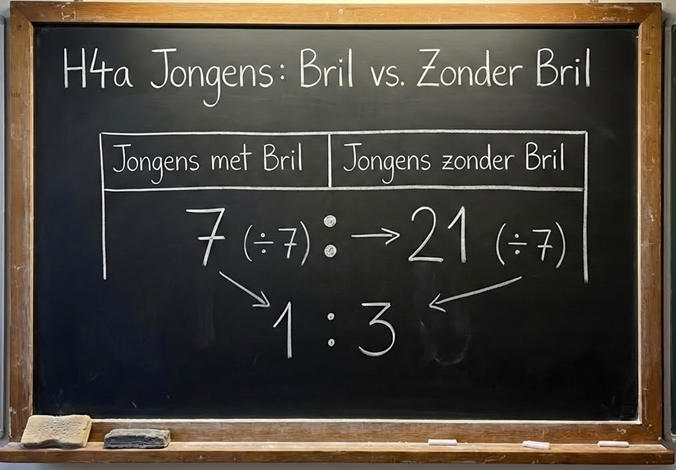 H4a Jongens: Bril vs. Zonder Bril
Jongens met Bril Jongens zonder Bril
7 (÷7) : → 21 (÷7)
1 : 3